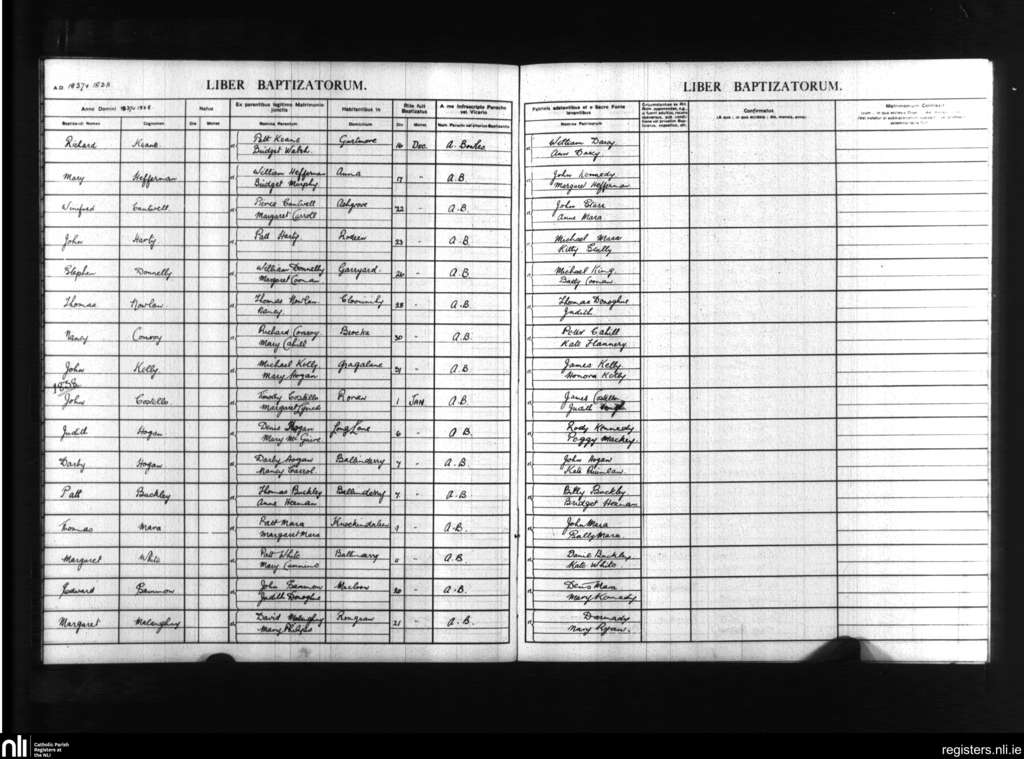 A.D. 1837 & 1838
LIBER BAPTIZATORUM.
Anno Domini 1837 & 1838
Natus
Ex parentibus legitimo Matrimonio junctis
Habitantibus in
Rite fuit Baptizatus
A me infrascripto Parocho vel Vicario
Baptismali Nomen
Cognomen
Die
Mense
Nomina Parentum
Domicilium
Die
Mense
Nom. Parochi vel alterius Baptizantis
Richard Keane Patt Keane Gurtmore 16 Dec. A. Bowles
Bridget Walsh
Mary Heffernan William Heffernan Anna 17 " A.B.
Bridget Murphy
Winifred Cantwell Pierce Cantwell Ashgrove 22 " A.B.
Margaret Carroll
John Harty Patt Harty 23 " A.B.
Stephen Donnelly William Donnelly Garryard 26 " A.B.
Margaret Coonan
Thomas Nowlan Thomas Nowlan 28 " A.B.
Nancy
Nancy Conroy Richard Conroy Brocka 30 " A.B.
Mary Cahill
John Kelly Michael Kelly Gragalane 31 " A.B.
Mary Hogan
1838
John Costello Timothy Costello 1 JAN A.B.
Margaret Lynch
Judith Hogan Denis Hogan Long Lane 6 " A.B.
Mary McGuire
Darby Hogan Darby Hogan Ballinderry 7 " A.B.
Nancy Carrol
Patt Buckley Thomas Buckley Ballinderry 7 " A.B.
Anne Heenan
Thomas Mara Patt Mara 9 " A.B.
Margaret Mara
Margaret White Patt White 11 " A.B.
Mary
Edward Bannon John Bannon 20 " A.B.
Judith Donoghue
Margaret David 21 " A.B.
Mary Philips
LIBER BAPTIZATORUM.
Patrinis adstantibus et a Sacro Fonte levantibus
Nomina Patrinorum
Confirmatus
(A quo ; in qua ecclesia ; die, mensis, anno).
William Darcy
Ann Darcy
John Kennedy
Margaret Heffernan
John
Anne Mara
Michael Mara
Kitty Scully
Michael King
Coonan
Thomas Donoghue
Judith
Peter Cahill
Kate Flannery
James Kelly
Honora Kelly
James Costello
Judith
Rody Kennedy
Peggy Mackey
John Hogan
Kate Quinlan
Billy Buckley
Bridget Heenan
John Mara
Mara
Daniel Buckley
Kate White
Denis Mara
Mary Kennedy
Darmady
Mary Ryan
nli
Catholic Parish
Registers at
the NLI
registers.nli.ie